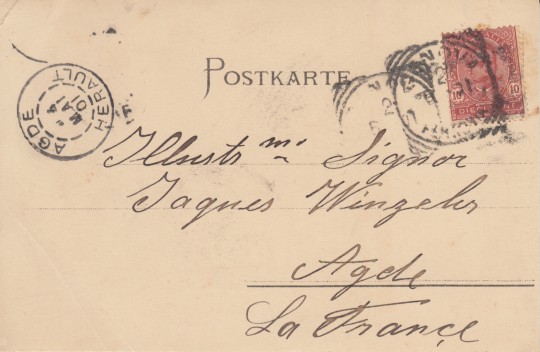 POSTKARTE
AGDE
HERAULT
10 10
Illustr. mo Signor
Jaques Winzeler
Agde
La France